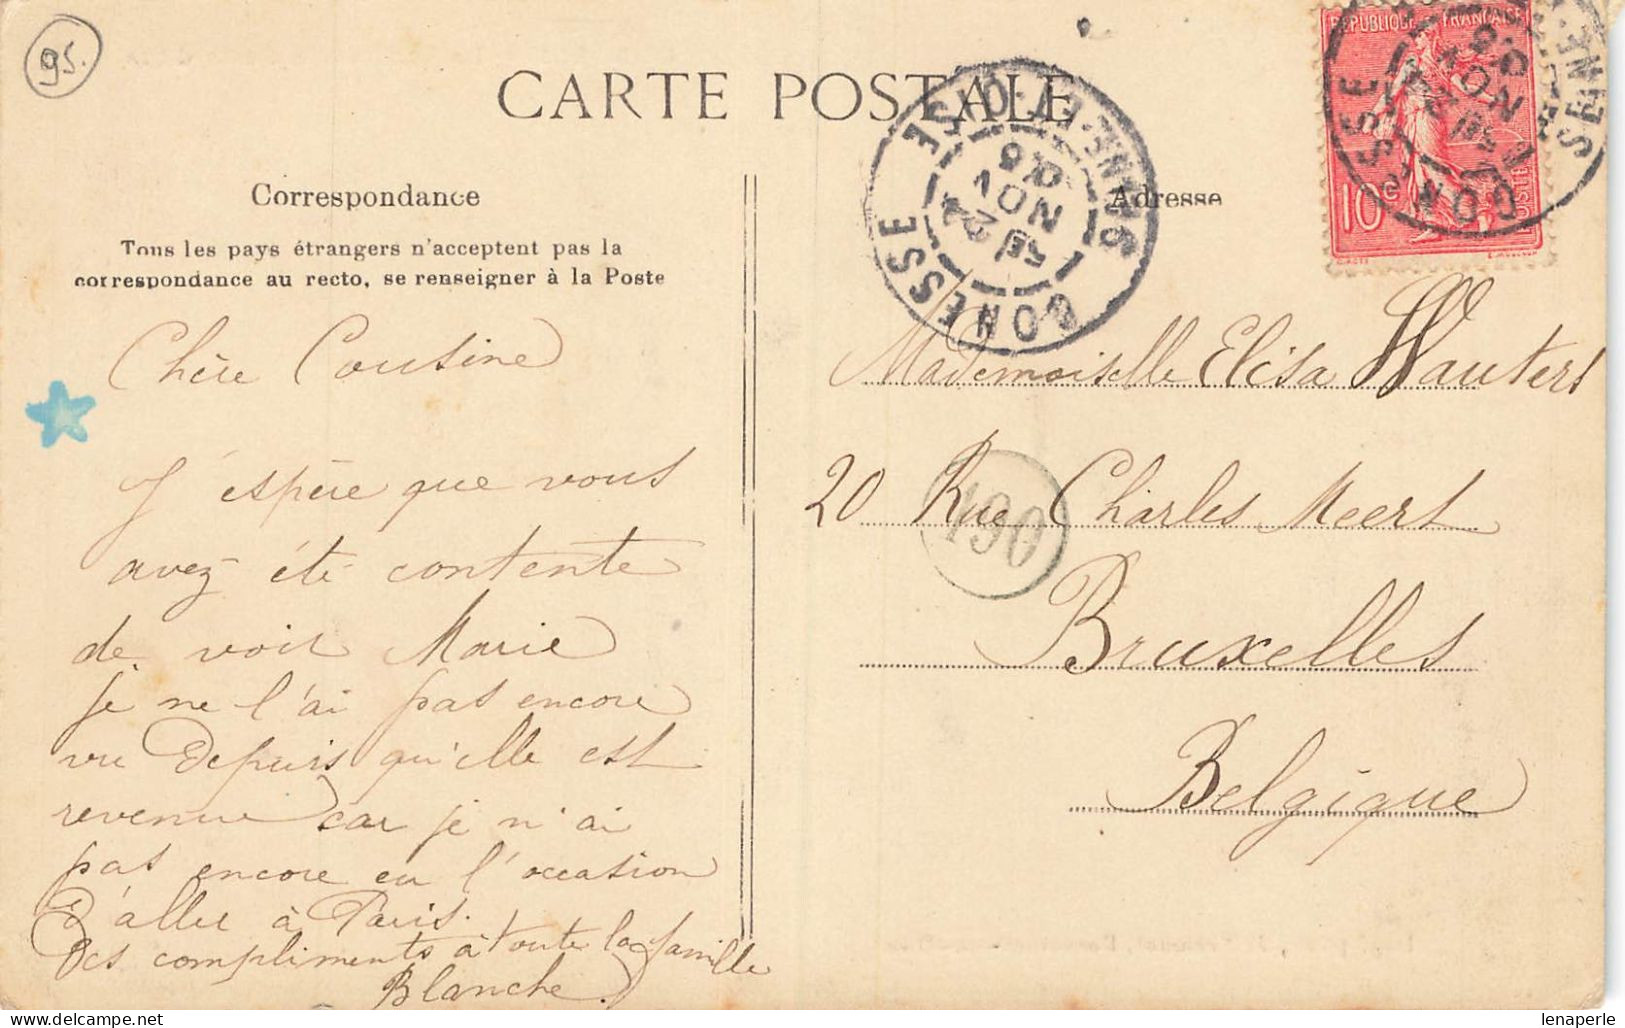 95.
CARTE POSTALE
Correspondance
Tous les pays étrangers n'acceptent pas la
correspondance au recto, se renseigner à la Poste
Chère Cousine
J'espère que vous
avez été contente
de voir Marie
je ne l'ai pas encore
vu depuis qu'elle est
revenue car je n'ai
pas encore eu l'occasion
d'aller à Paris.
Des compliments à toute la famille
Blanche
Adresse
REPUBLIQUE FRANÇAISE
10c
POSTES
GONESSE
SEINE-ET-OISE
22
NOV
06
GONESSE
SEINE
NOV
06
Mademoiselle Elisa Wauters
20 Rue Charles Meert
190
Bruxelles
Belgique
lenaperle